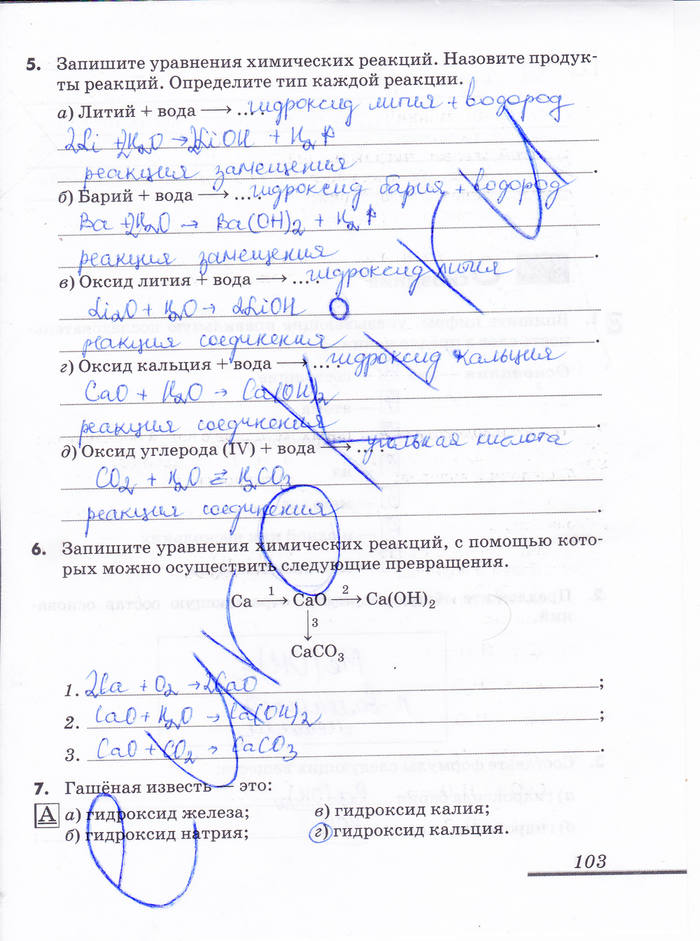 5. Запишите уравнения химических реакций. Назовите продук-
ты реакций. Определите тип каждой реакции.
а) Литий + вода ⟶ ..... гидроксид лития + водород
2Li + 2H₂O → 2LiOH + H₂↑
реакция замещения.
б) Барий + вода ⟶ ..... гидроксид бария + водород
Ba + 2H₂O → Ba(OH)₂ + H₂↑
реакция замещения.
в) Оксид лития + вода ⟶ ..... гидроксид лития
Li₂O + H₂O → 2LiOH
реакция соединения.
г) Оксид кальция + вода ⟶ ..... гидроксид кальция
CaO + H₂O → Ca(OH)₂
реакция соединения.
д) Оксид углерода (IV) + вода ⟶ ..... угольная кислота
CO₂ + H₂O ⇄ H₂CO₃
реакция соединения.
6. Запишите уравнения химических реакций, с помощью кото-
рых можно осуществить следующие превращения.
Ca 1⟶ CaO 2⟶ Ca(OH)₂
↓3
CaCO₃
1. 2Ca + O₂ → 2CaO ;
2. CaO + H₂O → Ca(OH)₂ ;
3. CaO + CO₂ → CaCO₃ .
7. Гашёная известь — это:
А а) гидроксид железа; в) гидроксид калия;
б) гидроксид натрия; г) гидроксид кальция.
103